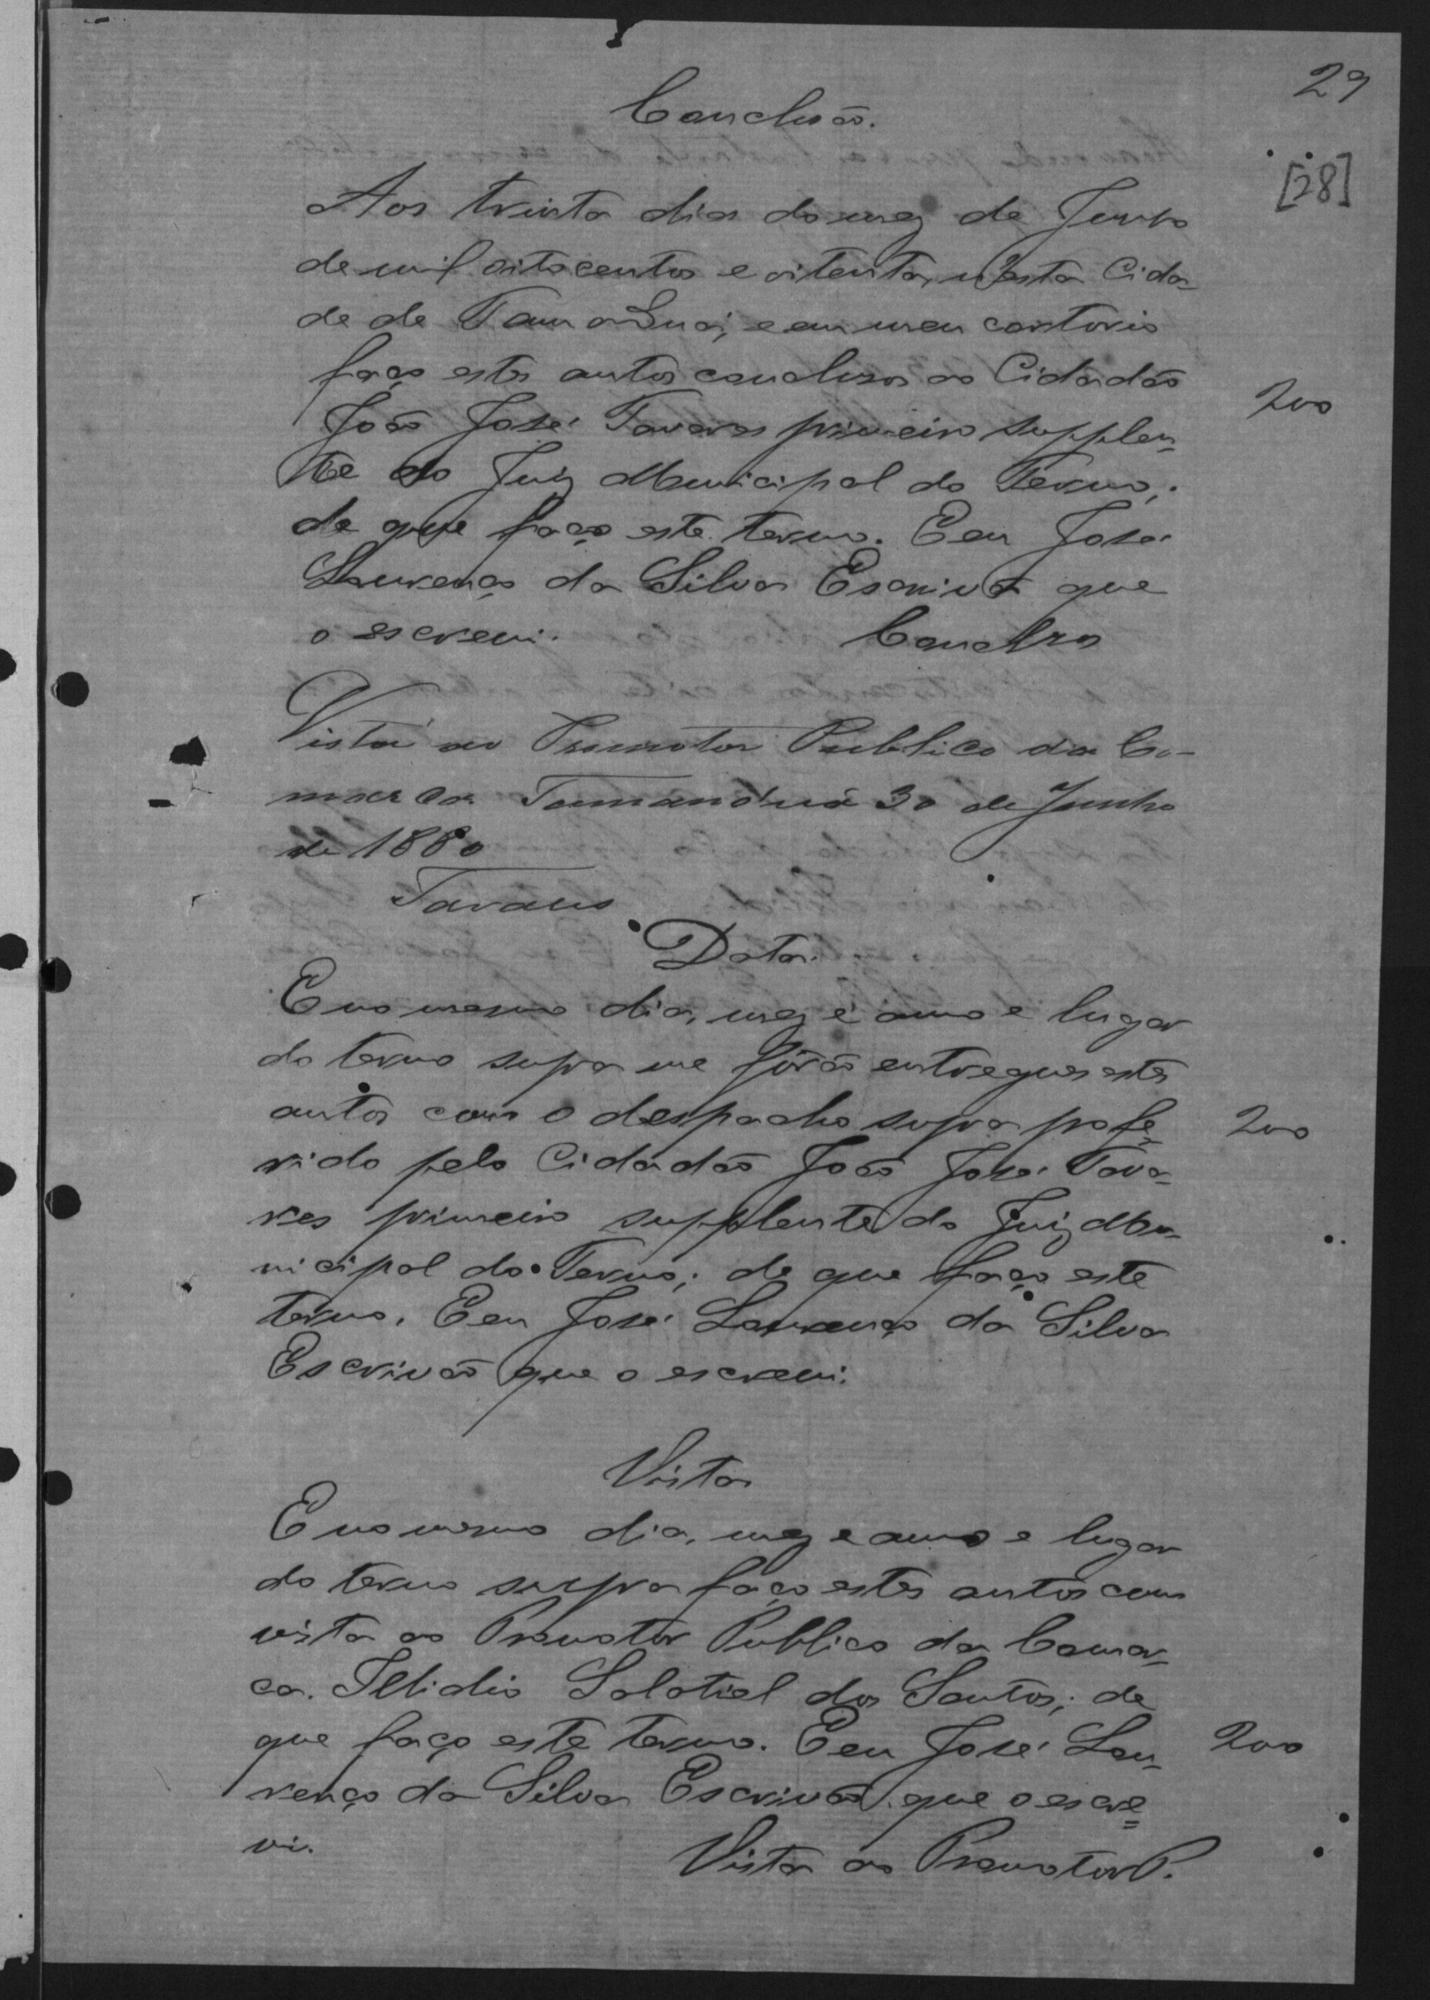 29
[28]
Conclusão.
Aos trinta dias do mez de Junho
de mil oitocentos e oitenta, nesta Cida-
de de Tamanduá, e em meu cartorio
faço estes autos conclusos ao Cidadão
200
João José Tavares primeiro supplen-
te do Juiz Municipal do Termo;
de que faço este termo. E eu José
Lourenço da Silva Escrivão que
o escrevi. Conclusos
Vista ao Promotor Publico da Co-
marca Tamanduá 30 de Junho
de 1880
Tavares
Data.
E no mesmo dia, mez e anno e lugar
do termo supra me fôrão entregues estes
autos com o despacho supra profe-
200
rido pelo Cidadão João José Tava-
res primeiro supplente do Juiz Mu-
nicipal do Termo; de que faço este
termo. E eu José Lourenço da Silva
Escrivão que o escrevi.
Vista
E no mesmo dia, mez e anno e lugar
do termo supra faço estes autos com
vista ao Promotor Publico da Comar-
ca. Salatiel dos Santos; de
que faço este termo. E eu José Lou-
200
renço da Silva Escrivão que o escre-
vi.
Vista ao Promotor P.